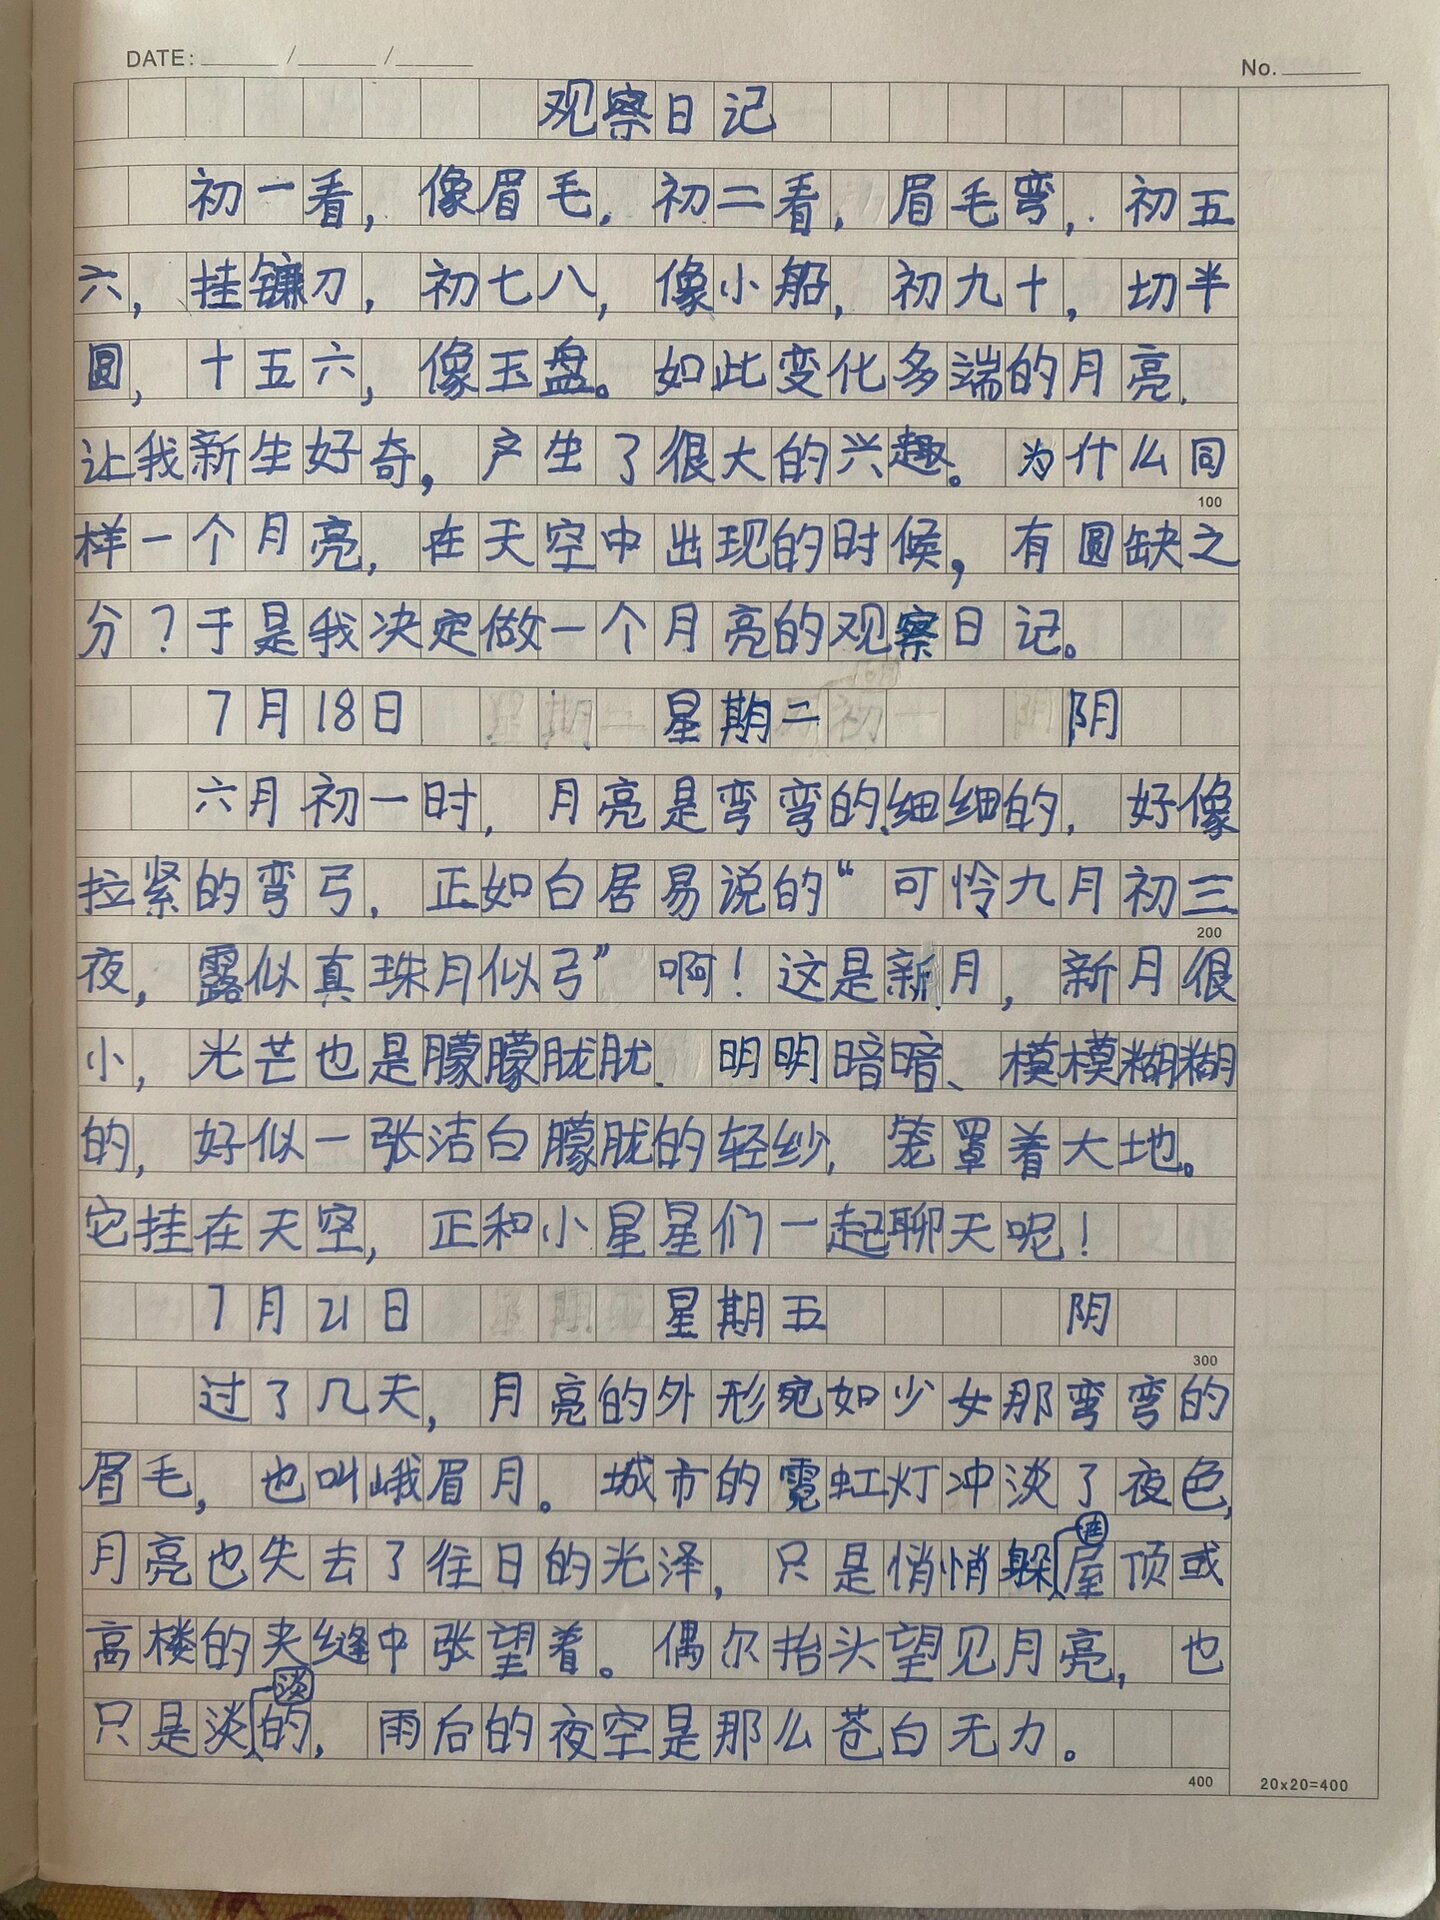 DATE: / /
No.
观察日记
初一看，像眉毛，初二看，眉毛弯，初五
六，挂镰刀，初七八，像小船，初九十，切半
圆，十五六，像玉盘。如此变化多端的月亮，
让我新生好奇，产生了很大的兴趣。为什么同
100
样一个月亮，在天空中出现的时候，有圆缺之
分？于是我决定做一个月亮的观察日记。
7月18日 星期二 阴
六月初一时，月亮是弯弯的、细细的，好像
拉紧的弯弓，正如白居易说的“可怜九月初三
200
夜，露似真珠月似弓”啊！这是新月，新月很
小，光芒也是朦朦胧胧、明明暗暗、模模糊糊
的，好似一张洁白朦胧的轻纱，笼罩着大地。
它挂在天空，正和小星星们一起聊天呢！
7月21日 星期五 阴
300
过了几天，月亮的外形宛如少女那弯弯的
眉毛，也叫峨眉月。城市的霓虹灯冲淡了夜色，
月亮也失去了往日的光泽，只是悄悄躲在屋顶或
高楼的夹缝中张望着。偶尔抬头望见月亮，也
只是淡淡的，雨后的夜空是那么苍白无力。
400
20x20=400